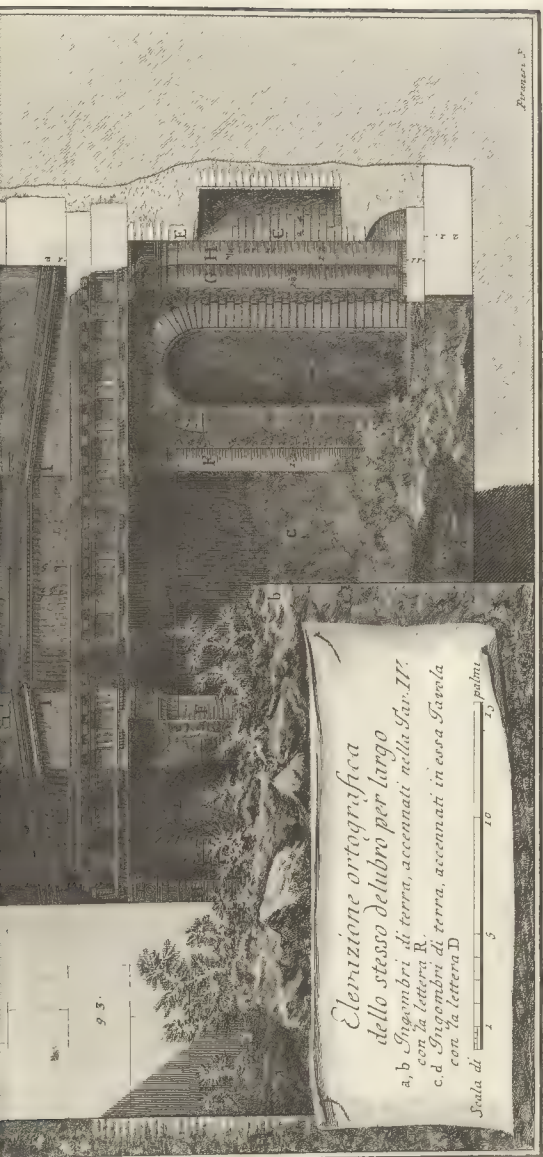 Elevazione ortografica
dello stesso delubro per largo
a, b Ingombri di terra, accennati nella Tav. IV.
con la lettera R.
c. d Ingombri di terra, accennati in essa Tavola
con la lettera D
Scala di
1 5 10 15 palmi
93.
F
F
G H
E
E
I
I
b
c